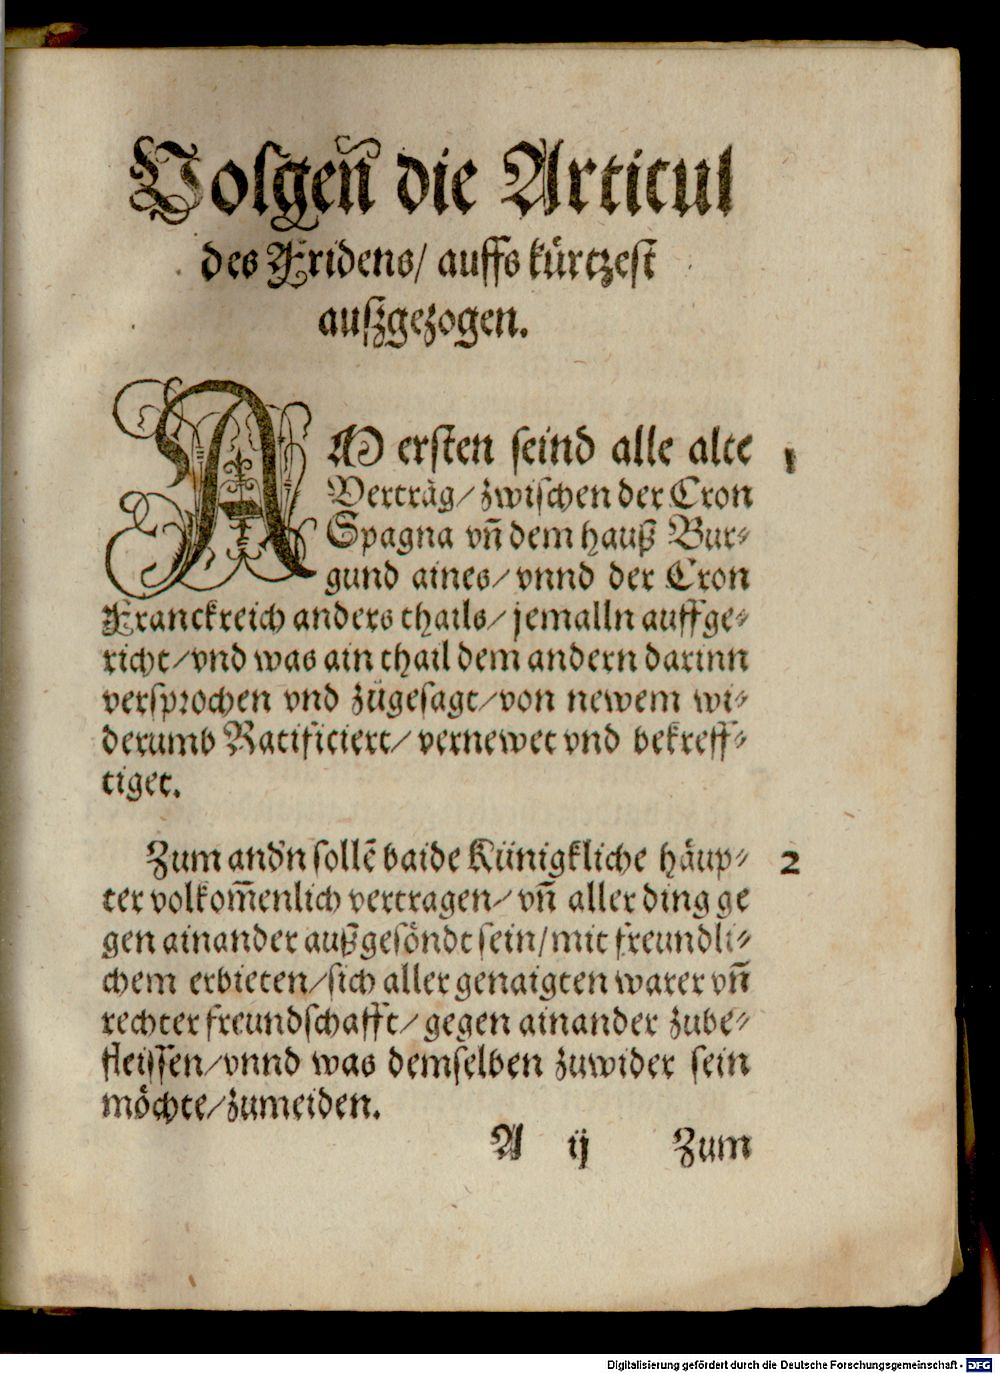 Volgen̄ die Articul
des Fridens/ auffs kürtzest
außgezogen.
AM ersten seind alle alte 1
Verträg/ zwischen der Cron
Spagna vn̄ dem hauß Bur⸗
gund aines/ vnnd der Cron
Franckreich anders thails/ jemalln auffge⸗
richt/ vnd was ain thail dem andern darinn
versprochen vnd zůgesagt/ von newem wi⸗
derumb Ratificiert/ vernewet vnd bekreff⸗
tiget.
Zum and'n sollē baide Künigkliche häup⸗ 2
ter volkom̄enlich vertragen/ vn̄ aller ding ge
gen ainander außgesöndt sein/ mit freundli⸗
chem erbieten/ sich aller genaigten warer vn̄
rechter freundschafft/ gegen ainander zube⸗
fleissen/ vnnd was demselben zuwider sein
möchte/ zumeiden.
A ij Zum
Digitalisierung gefördert durch die Deutsche Forschungsgemeinschaft - DFG